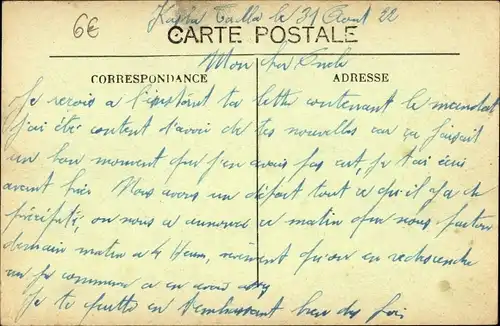 6€
Kasba Tadla le 31 Aout 22
CARTE POSTALE
Mon cher Oncle
CORRESPONDANCE
ADRESSE
Je reçois a l'instant ta lettre contenant le mandat
j'ai été content d'avoir de tes nouvelles car ça faisait
un bon moment que j'en avais pas eut, je t'ai écris
avant hier. Nous avons un départ tout ce qu'il y a de
précipité, on nous a annoncé ce matin que nous partons
demain matin a 4 Heures, vivement qu'on en redescende
un je commence a en avoir
Je te quitte en t'embrassant bien des fois